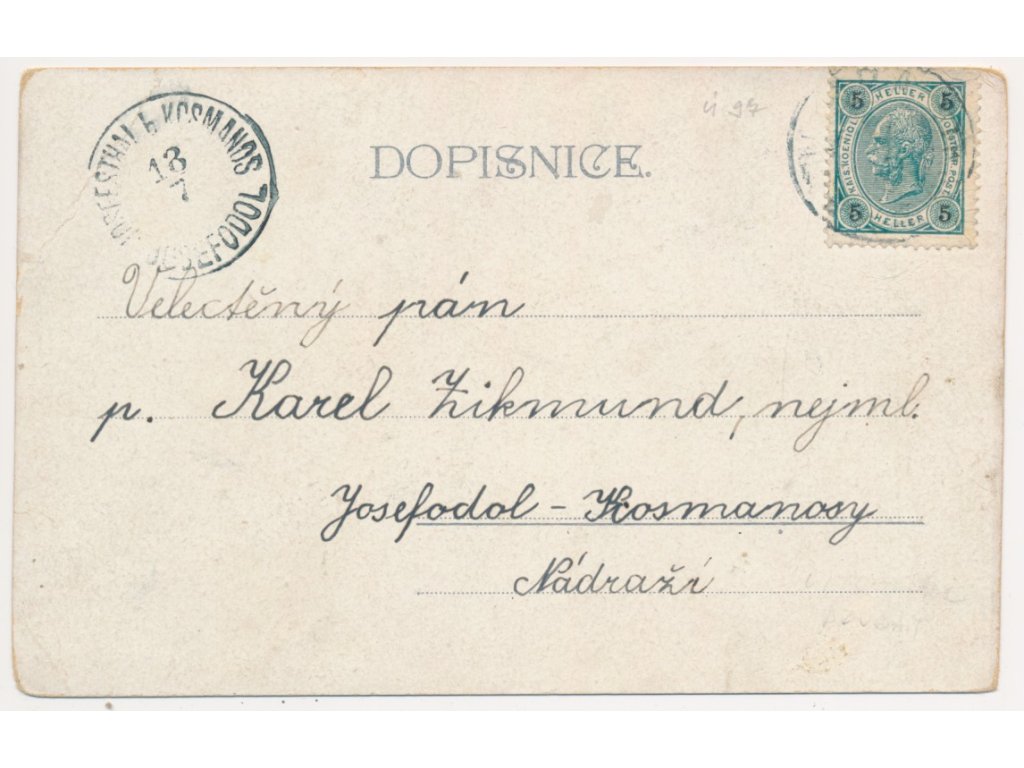 ú 97
5 HELLER 5
KAIS. KOENIGL. OESTERR. POST.
5 HELLER 5
JOSEFSTHAL b. KOSMANOS
13
7
JOSEFODOL
DOPISNICE.
Velectěný pán
p. Karel Zikmund, nejml.
Josefodol - Kosmanosy
Nádraží